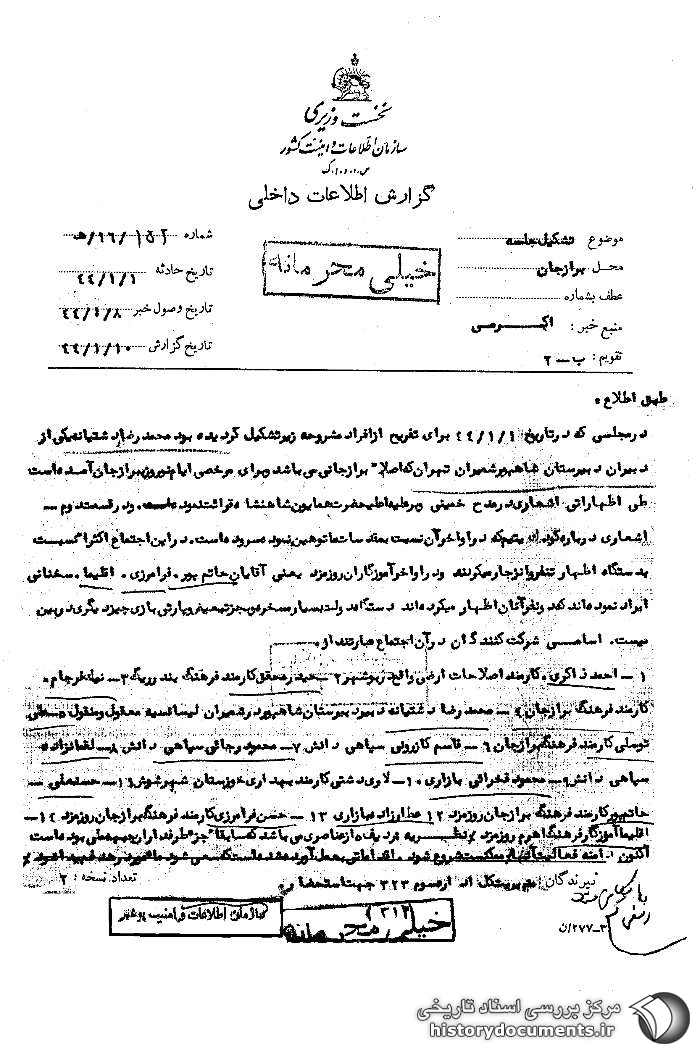 نخست وزیری
سازمان اطلاعات و امنیت کشور
س.ا.و.ا.ک
گزارش اطلاعات داخلی
موضوع تشکیل جلسه
محل برازجان
عطف بشماره
منبع خبر : اکرمی
تقویم : ب - ۲
خیلی محرمانه
شماره ۱۵۲/۱۶/هـ
تاریخ حادثه ۴۴/۱/۱
تاریخ وصول خبر ۴۴/۱/۸
تاریخ گزارش ۴۴/۱/۱۰
طبق اطلاع .
در مجلسی که در تاریخ ۴۴/۱/۱ برای تفریح از افراد مشروحه زیر تشکیل گردیده بود محمد رضا دشتیانه یکی از
دبیران دبیرستان شاهپور شمیران تهران که اصلا" برازجانی می باشد و برای مرخصی ایام نوروز ببرازجان آمده است
طی اظهاراتی اشعاری در مدح خمینی و بر علیه اعلیحضرت همایون شاهنشاه قرائت نموده است . و در قسمت دوم -
اشعاری درباره کودک یتیم که در اواخر آن نسبت بمقدسات ما توهین نموده سروده است . در این اجتماع اکثرا" نسبت
بدستگاه اظهار تنفر و انزجار میکردند و در اواخر آموزگاران روزمزد یعنی آقایان حاتم پور . فرامرزی . اقلیما . سخنانی
ایراد نموده اند که نفرآنان اظهار میکرده اند دستگاه دولت بسیار مسخره و جز تبعیض و پارتی بازی چیز دیگری در بین
نیست . اسامی شرکت کنندگان در آن اجتماع عبارتند از .
۱ - احمد ذاکری . کارمند اصلاحات ارضی واقع در بوشهر ۲ - حیدر محقق کارمند فرهنگ بندر ریگ ۳ -
کارمند فرهنگ برازجان ۴ - محمد رضا دشتیانه دبیر دبیرستان شاهپور شمیران لیسانسیه معقول و منقول ۵ - علی
توسلی کارمند فرهنگ برازجان ۶ - قاسم کازرونی سپاهی دانش ۷ - محمود رجائی سپاهی دانش ۸ - لقمانزاده
سپاهی دانش ۹ - محمود فخرائی بازاری ۱۰ - لاری دشتی کارمند بهداری خوزستان شهر شوش ۱۱ - حمد علی -
حاتم پور کارمند فرهنگ برازجان روزمزد ۱۲ عطارزاده بازاری ۱۳ - حسن فرامرزی کارمند فرهنگ برازجان روزمزد ۱۴ -
اقلیما آموزگار فرهنگ اهرم روزمزد . نظریه نامبردگان از عناصری می باشد که سابقا" جز" طرفداران جبهه ملی بوده است
گیرندگان مدیریت کل اداره سوم ۳۲۳ جهت استحضار
تعداد نسخه : ۲
سازمان اطلاعات و امنیت بوشهر
خیلی محرمانه
۳-۲۷۷/ن
مرکز بررسی اسناد تاریخی
historydocuments.ir